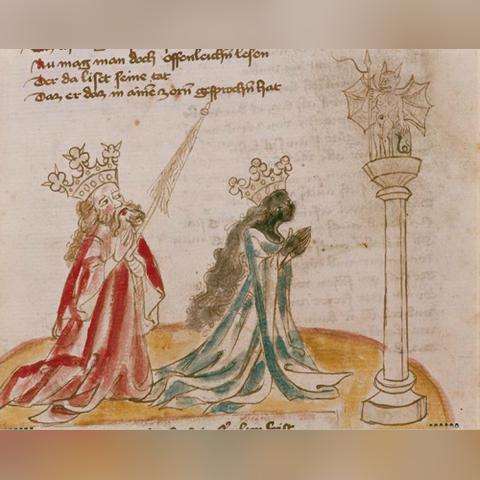 Nu mag man doch offenleichn lesen
Der da liset seine tat
Daz er daz in aine zorn gesprochn hat